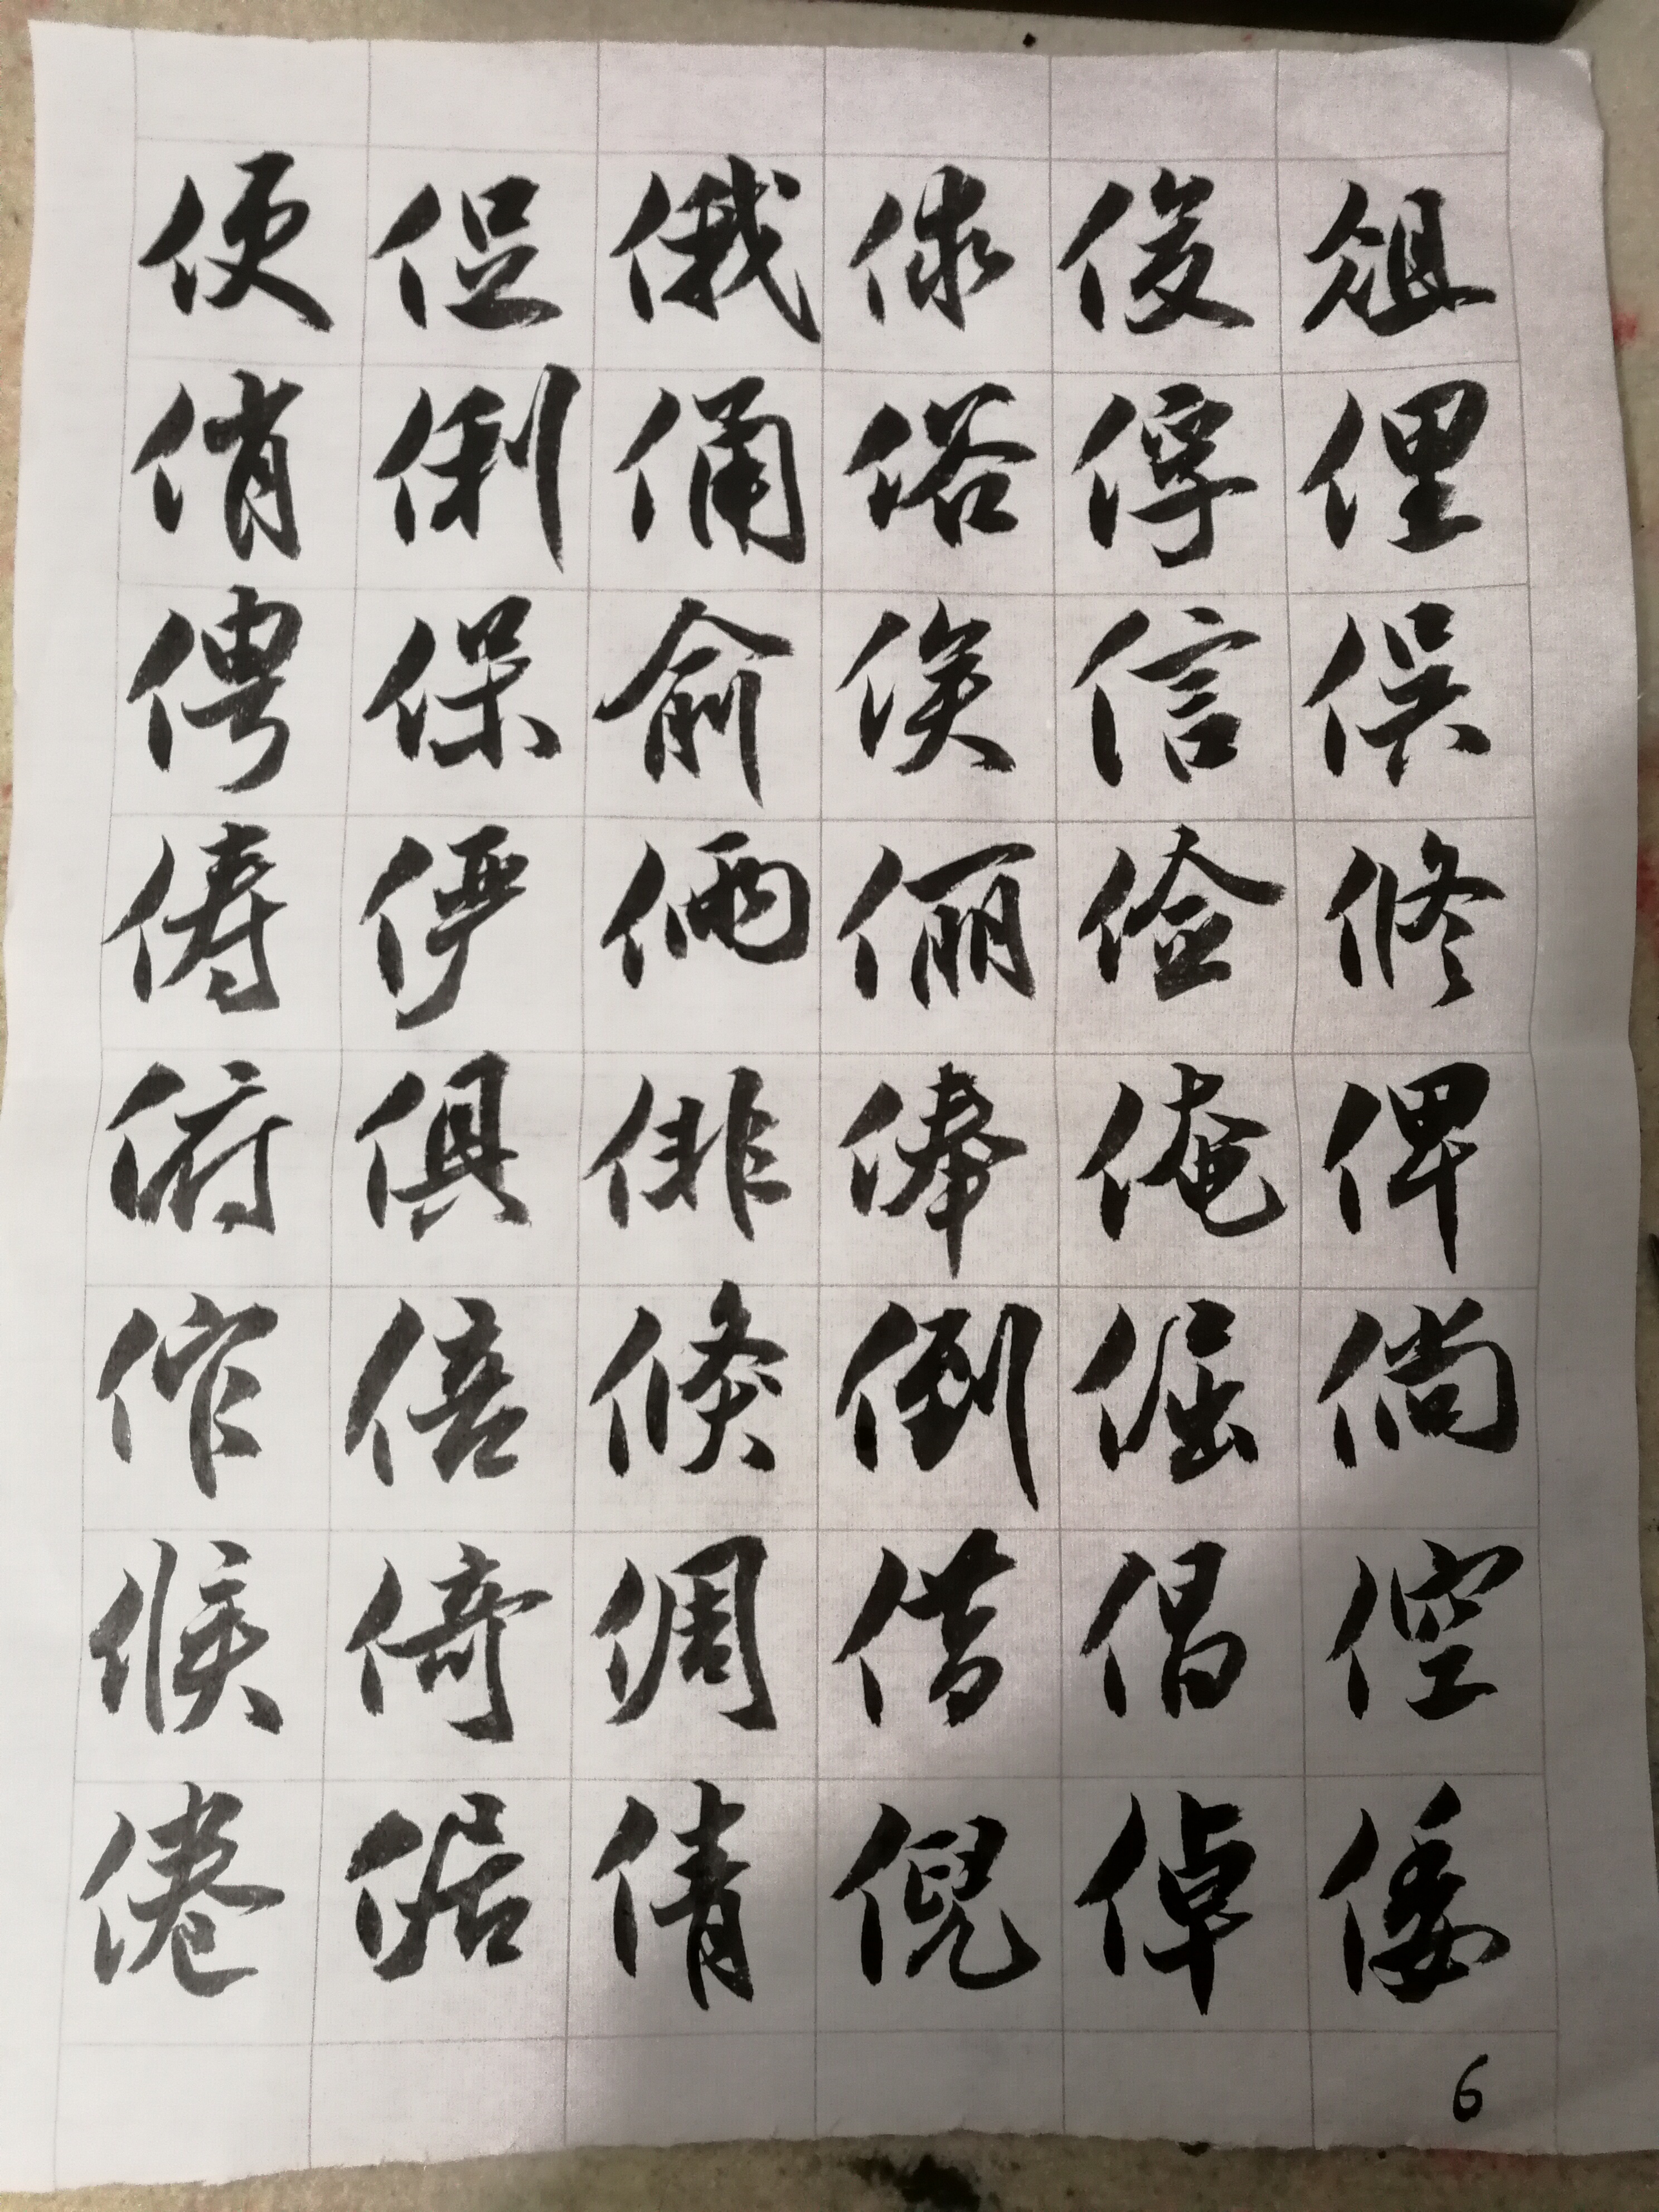 便促俄俅俊俎
俏俐俑俗俘俚
俜保俞俟信俣
俦俨俩俪俭修
俯俱俳俸俺俾
倍倏倒倔倘
候倚倜借倡倥
倦倨倩倪倬倭
6